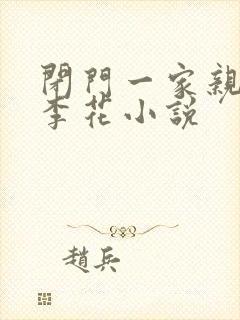 閉門一家親
李花小説
趙兵